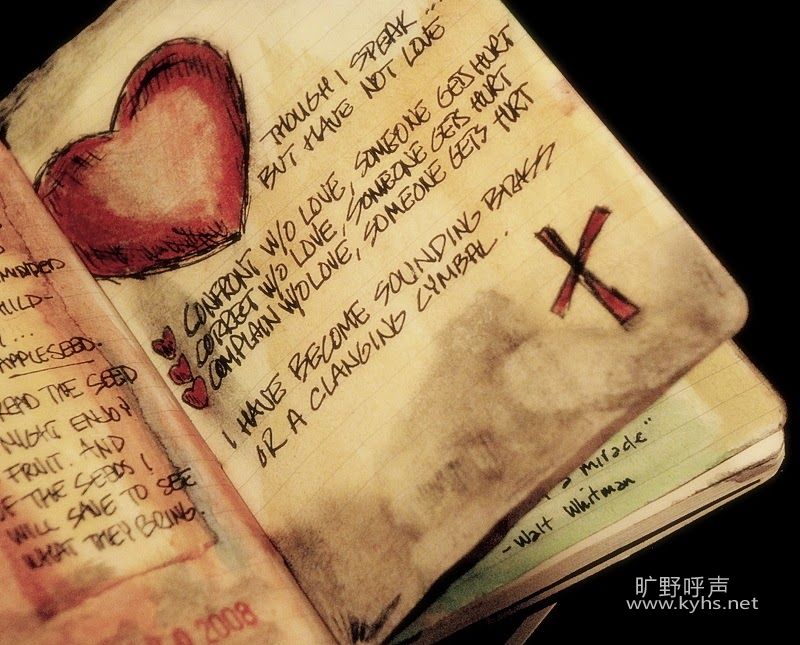 MINDED
HILD-
APPLESEED.
READ THE SEED
NIGHT ENJOY
FRUIT. AND
OF THE SEEDS I
WILL SAVE TO SEE
WHAT THEY BRING.
2008
THOUGH I SPEAK...
BUT HAVE NOT LOVE
CONFRONT W/O LOVE, SOMEONE GETS HURT
CORRECT W/O LOVE, SOMEONE GETS HURT
COMPLAIN W/O LOVE, SOMEONE GETS HURT
I HAVE BECOME SOUNDING BRASS
OR A CLANGING CYMBAL.
a miracle"
-Walt Whitman
旷野呼声
www.kyhs.net